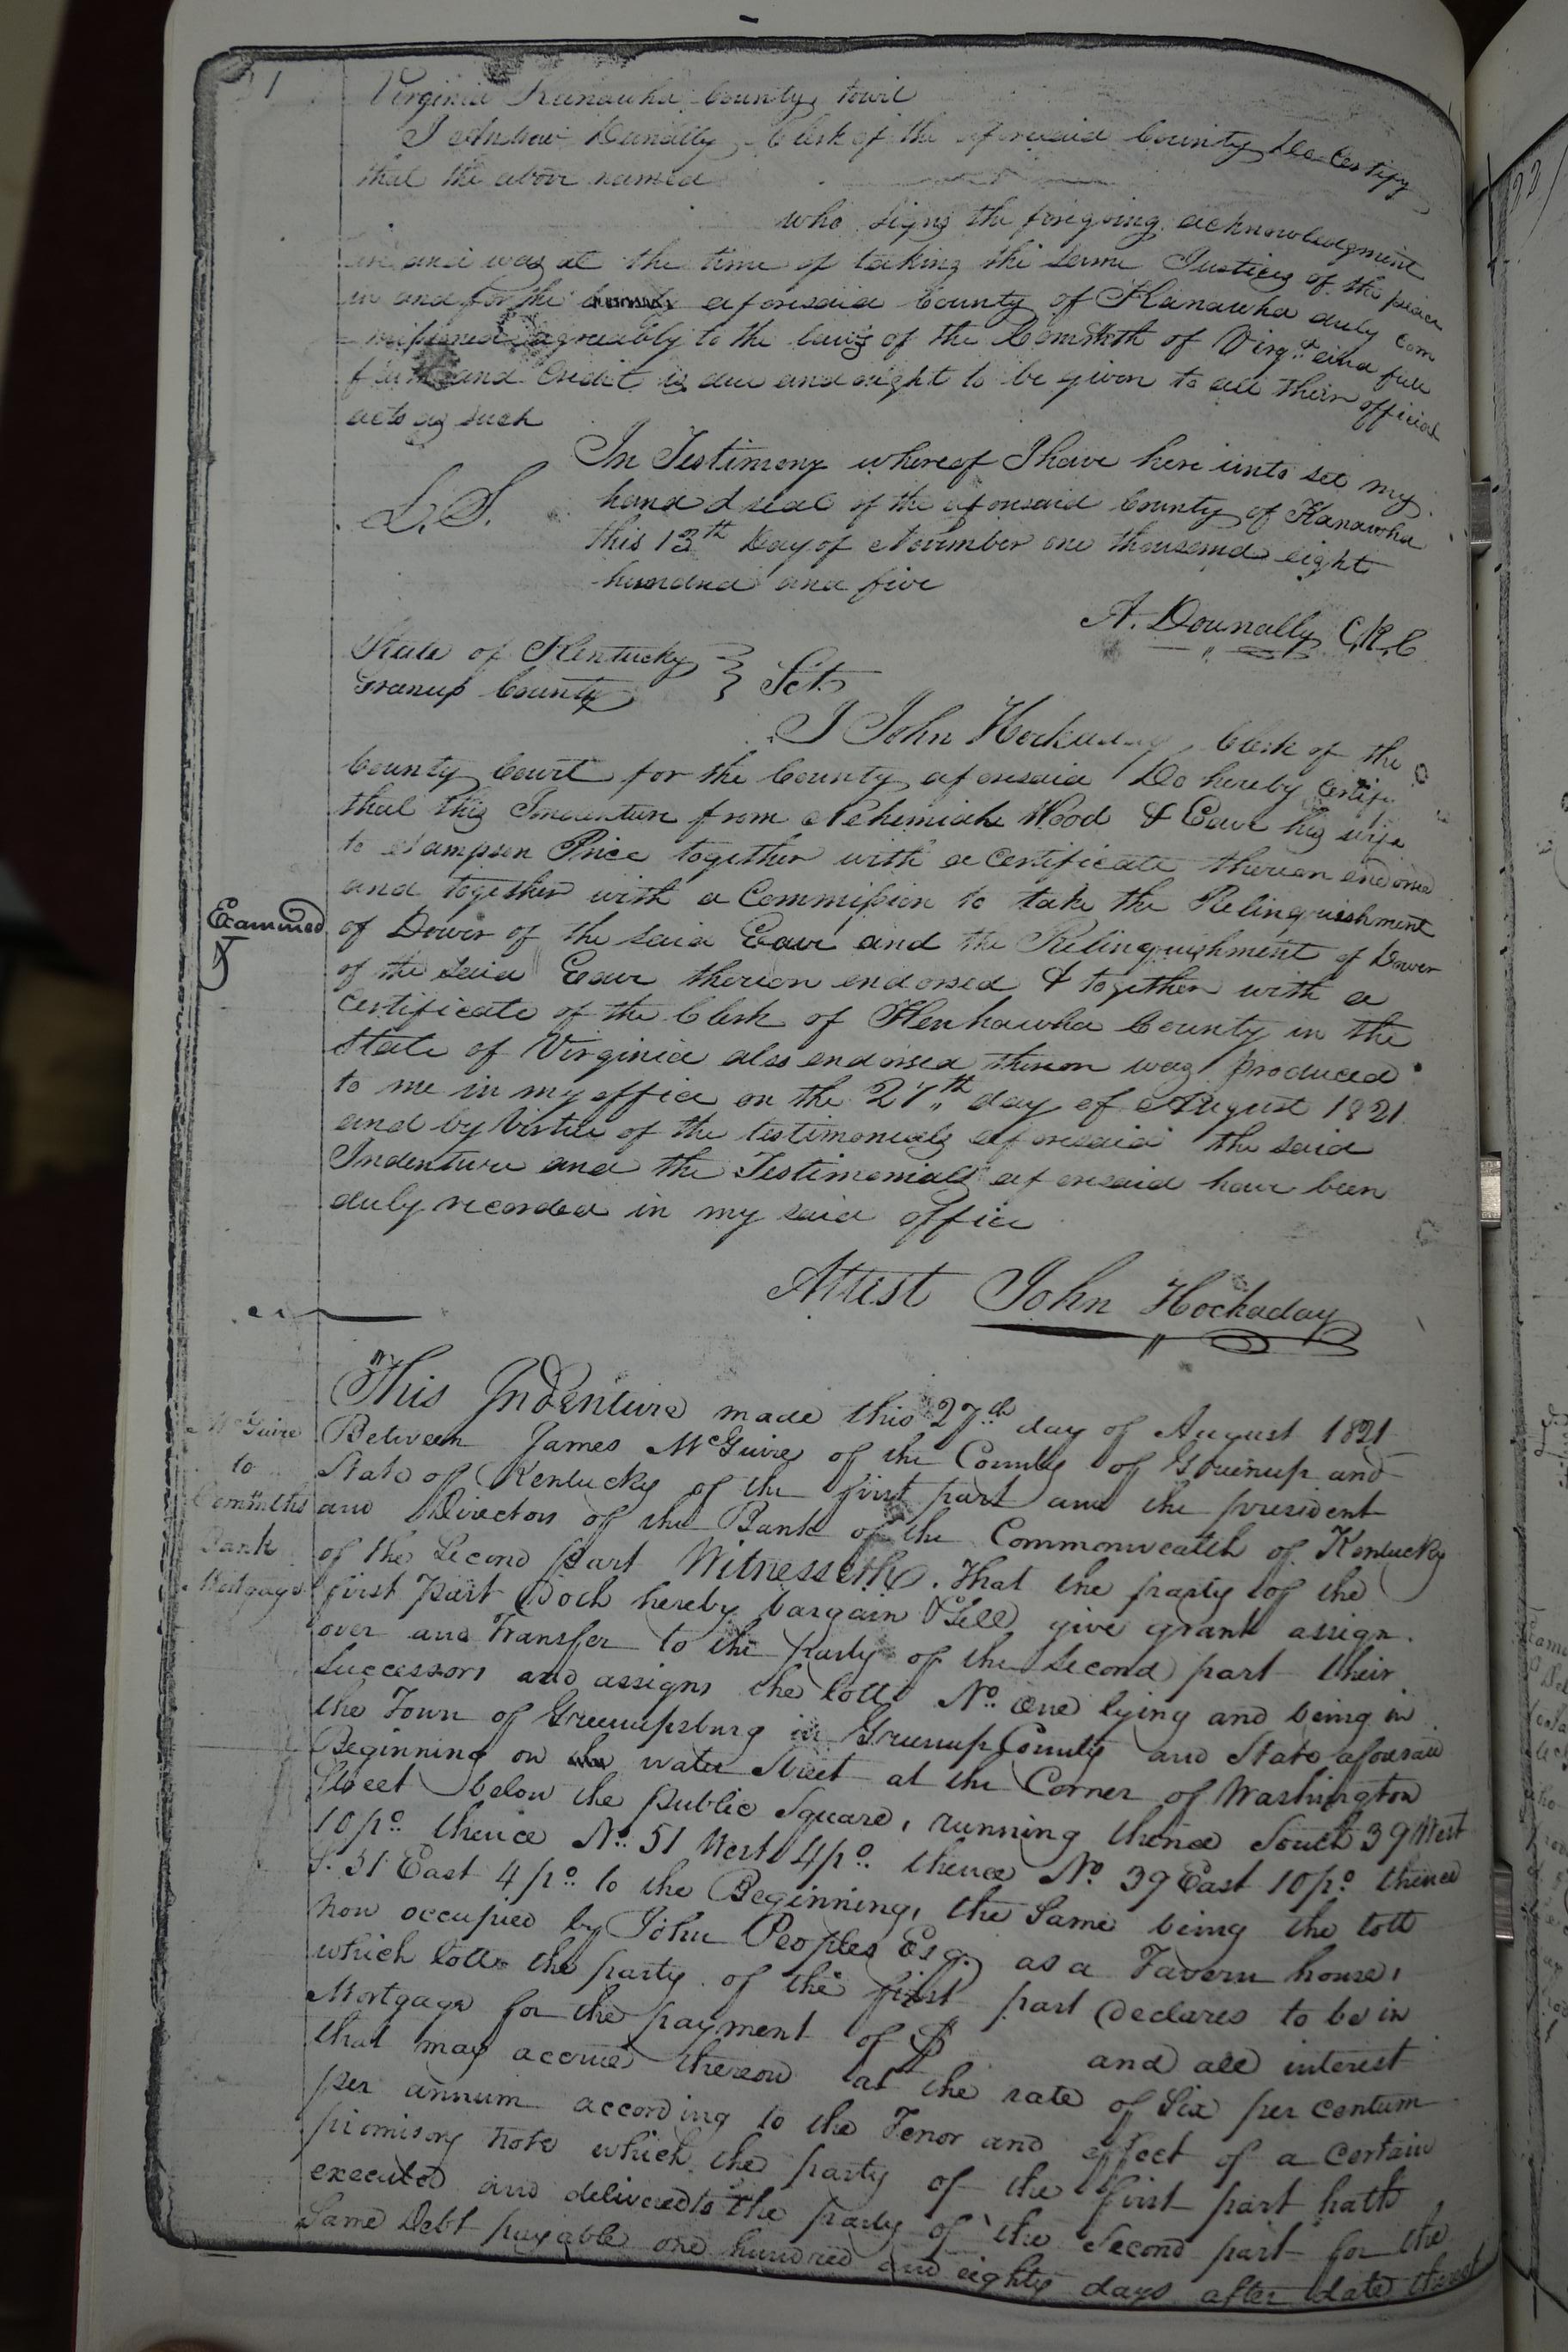 Virginia Kanawha County towit
I Andrew Dunally Clerk of the aforesaid County Do Certify
that the above named
who signs the foregoing acknowledgment
are and was at the time of taking the same Justices of the peace
in and for the aforesaid County of Kanawha duly Com
missioned agreeably to the laws of the Comwth of Virga and full
faith and Credit is due and ought to be given to all their official
acts as such
In Testimony whereof I have here unto set my
L.S. hand & seal of the aforesaid County of Kanawha
this 13th Day of November one thousand eight
hundred and five
A. Donnally C.K.C
State of Kentucky } Sct
Greenup County
I John Hockaday, Clerk of the
County Court for the County aforesaid Do hereby Certify
that this Indenture from Nehemiah Wood & Eave his wife
to Sampson Price together with a Certificate thereon endorsed
and together with a Commission to take the Relinquishment
Examined
of Dower of the said Eave and the Relinquishment of Dower
of the said Eave thereon endorsed & together with a
Certificate of the Clerk of Kenhawha County in the
State of Virginia also endorsed thereon was produced
to me in my office on the 27th day of August 1821
and by Virtue of the testimonials aforesaid the said
Indenture and the Testimonials aforesaid have been
duly recorded in my said office
Attest John Hockaday
McGuire
to
Commths
Bank
Mortgage
This Indenture made this 27th day of August 1821
Between James McGuire of the County of Greenup and
State of Kentucky of the first part and the president
and Directors of the Bank of the Commonwealth of Kentucky
of the Second part Witnesseth. That the party of the
first part Doth hereby bargain & Sell give grant assign
over and Transfer to the party of the Second part their
Successors and assigns the lott No. one lying and being in
the Town of Greenupsburg in Greenup County and State aforesaid
Beginning on water Street at the Corner of Washington
Street below the public Square, running thence South 39 West
10 po. thence No. 51 West 4 po. thence No. 39 East 10 po. thence
S. 51 East 4 po. to the Beginning, the Same being the lott
now occupied by John Peoples Esq. as a Tavern house,
which lott the party of the first part Declares to be in
Mortgage for the payment of $ and all interest
that may accrue thereon at the rate of Six per centum
per annum according to the Tenor and effect of a certain
promisory note which the party of the first part hath
executed and delivered to the party of the Second part for the
Same Debt payable one hundred and eighty days after date